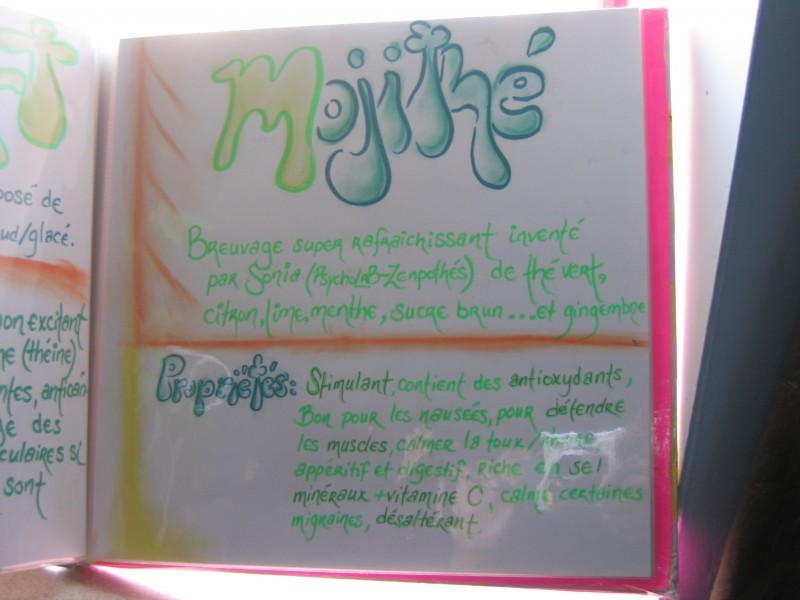 t
posé de
ud/glacé.
on excitant
ne (théine)
ntes, antican-
ge des
culaires si
sont
Mojithé
Breuvage super rafraîchissant inventé
par Sonia (PsychoLAB-Zenpothés) de thé vert,
citron, lime, menthe, sucre brun...et gingembre
Propriétés: Stimulant, contient des antioxydants,
Bon pour les nausées, pour détendre
les muscles, calmer la toux/rhume,
appéritif et digestif, riche en sel
minéraux +vitamine C, calme certaines
migraines, désaltérant.